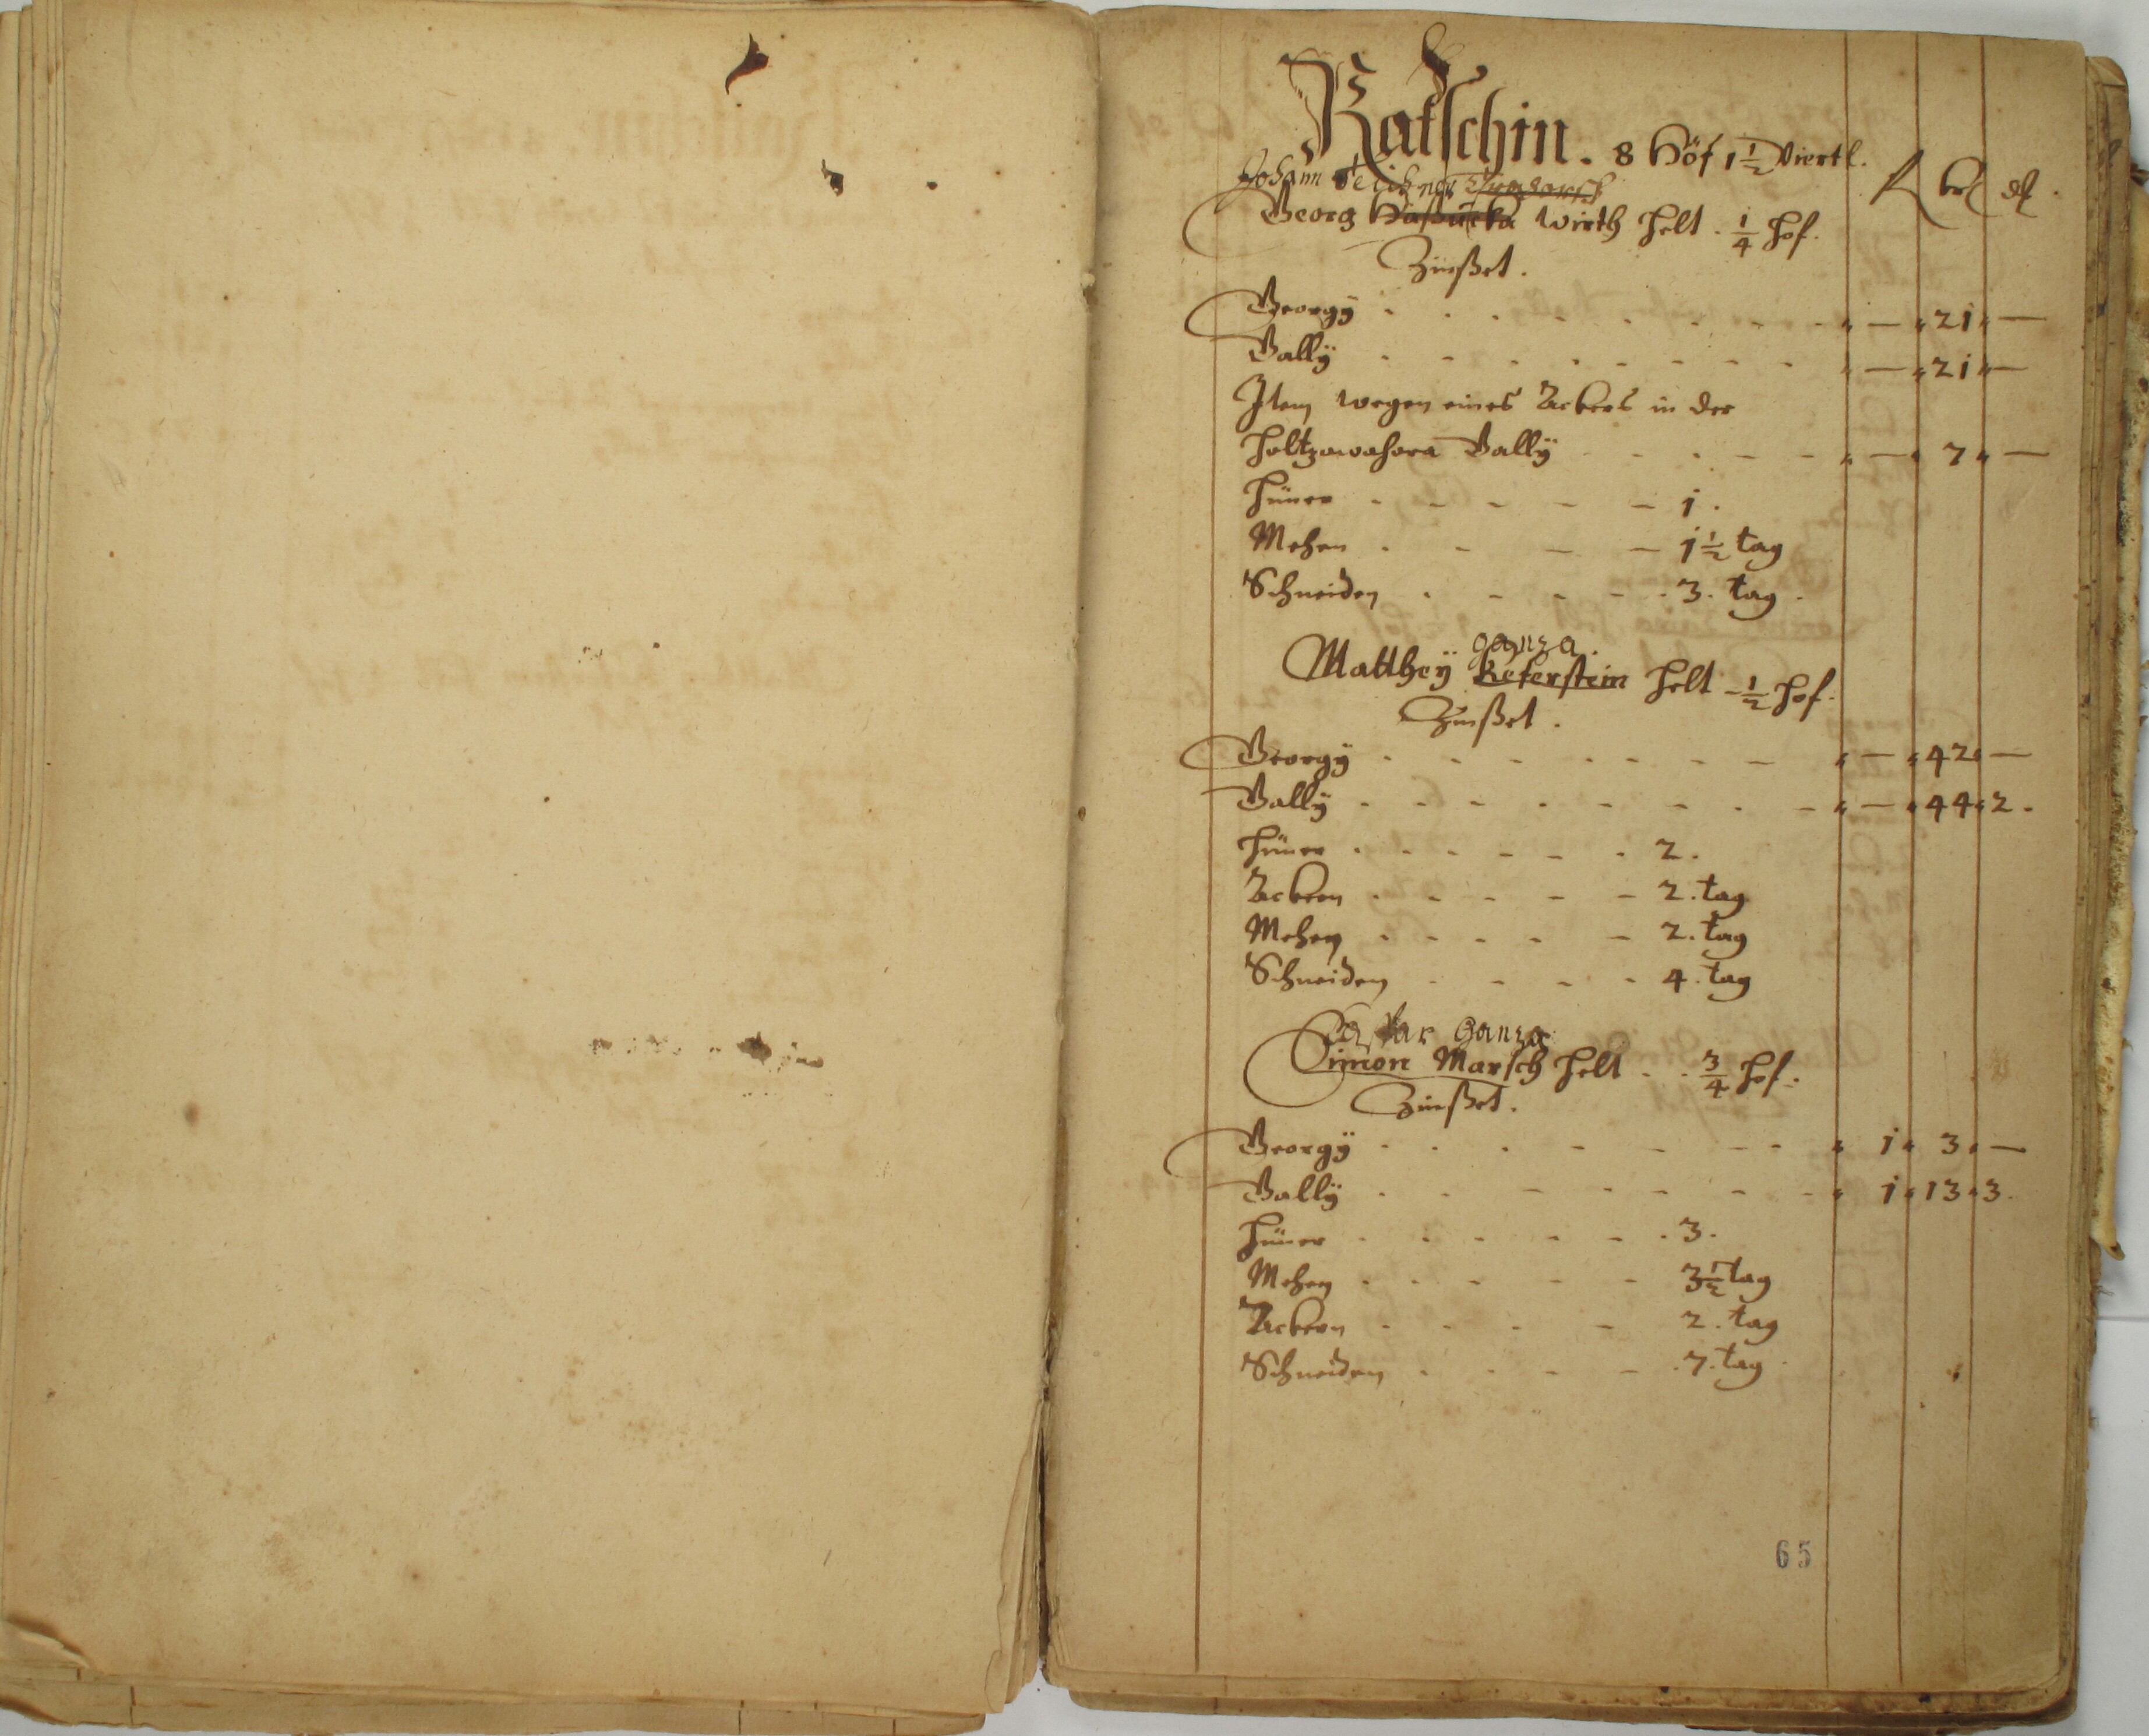 Ratschin. 8 Höf 1 1/2 Viertl.
fl kr dl.
Johann
Georg Haßurka Wirth helt. 1/4 hof.
Zinßet.
Georgÿ . . . . . . . . " — " 21 " —
Gallÿ . . . . . . . . " — " 21 " —
Item wegen eines Ackers in der
holtzawahora Gallÿ . . . . . " — " 7 " —
hüner . . . . . 1.
Mehen . . . . 1 1/2 tag
Schneiden . . . . . 3. tag.
ganza.
Matthey Keferstein helt 1/2 hof.
Zinßet.
Georgÿ . . . . . . . . " — " 42 " —
Gallÿ . . . . . . . . " — " 44 " 2.
hüner . . . . . . 2.
Ackern . . . . . 2. tag
Mehen . . . . . 2. tag
Schneiden . . . . 4. tag
Caspar Ganza
Simon Marsch helt . . 3/4 hof.
Zinßet.
Georgÿ . . . . . . . " 1 " 3 " —
Gallÿ . . . . . . . " 1 " 13 " 3.
hüner . . . . . . 3.
Mehen . . . . . 3 1/2 tag
Ackern . . . . 2. tag
Schneiden . . . . . 7. tag.
65